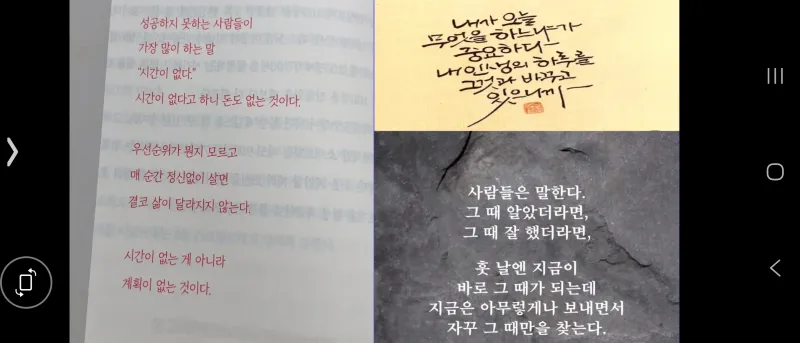 성공하지 못하는 사람들이
가장 많이 하는 말
"시간이 없다."
시간이 없다고 하니 돈도 없는 것이다.
우선순위가 뭔지 모르고
매 순간 정신없이 살면
결코 삶이 달라지지 않는다.
시간이 없는 게 아니라
계획이 없는 것이다.
내가 오늘
무엇을 하느냐가
중요하다
내 인생의 하루를
그것과 바꾸고
있으니까
사람들은 말한다.
그 때 알았더라면,
그 때 잘 했더라면,
훗 날엔 지금이
바로 그 때가 되는데
지금은 아무렇게나 보내면서
자꾸 그 때만을 찾는다.